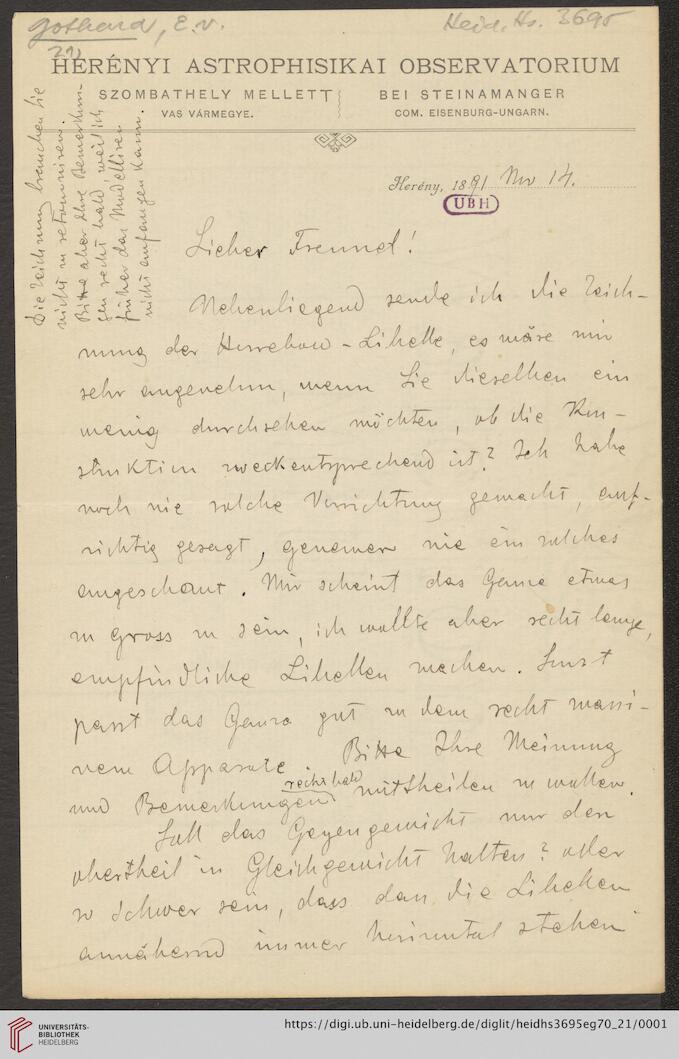 Gothard, E. v.
Heid. Hs. 3695
21)
HERÉNYI ASTROPHISIKAI OBSERVATORIUM
SZOMBATHELY MELLETT
VAS VÁRMEGYE.
BEI STEINAMANGER
COM. EISENBURG-UNGARN.
Die Zeichnung brauchen Sie
nicht zu retourniren.
Bitte aber Ihre Bemerkun-
gen recht bald, weil ich
früher das Modelliren
nicht anfangen kann.
Herény, 1891 Nov 14.
UBH
Lieber Freund!
Nebenliegend sende ich die Zeich-
nung der Horrebow-Libelle, es wäre mir
sehr angenehm, wenn Sie dieselben ein
wenig durchsehen möchten, ob die Kon-
struktion zweckentsprechend ist? Ich habe
noch nie solche Vorrichtung gemacht, auf-
richtig gesagt, genauer nie ein solches
angeschaut. Mir scheint das Ganze etwas
zu gross zu sein, ich wollte aber recht lange,
empfindliche Libellen machen. Sonst
passt das Ganze gut zu dem recht massi-
vem Apparate. Bitte Ihre Meinung
und Bemerkungen recht bald mittheilen zu wollen.
Soll das Gegengewicht nur den
obertheil in Gleichgewicht halten? oder
so schwer sein, dass dan die Libellen
annähernd immer horizontal stehen
UNIVERSITÄTS-
BIBLIOTHEK
HEIDELBERG
https://digi.ub.uni-heidelberg.de/diglit/heidhs3695eg70_21/0001